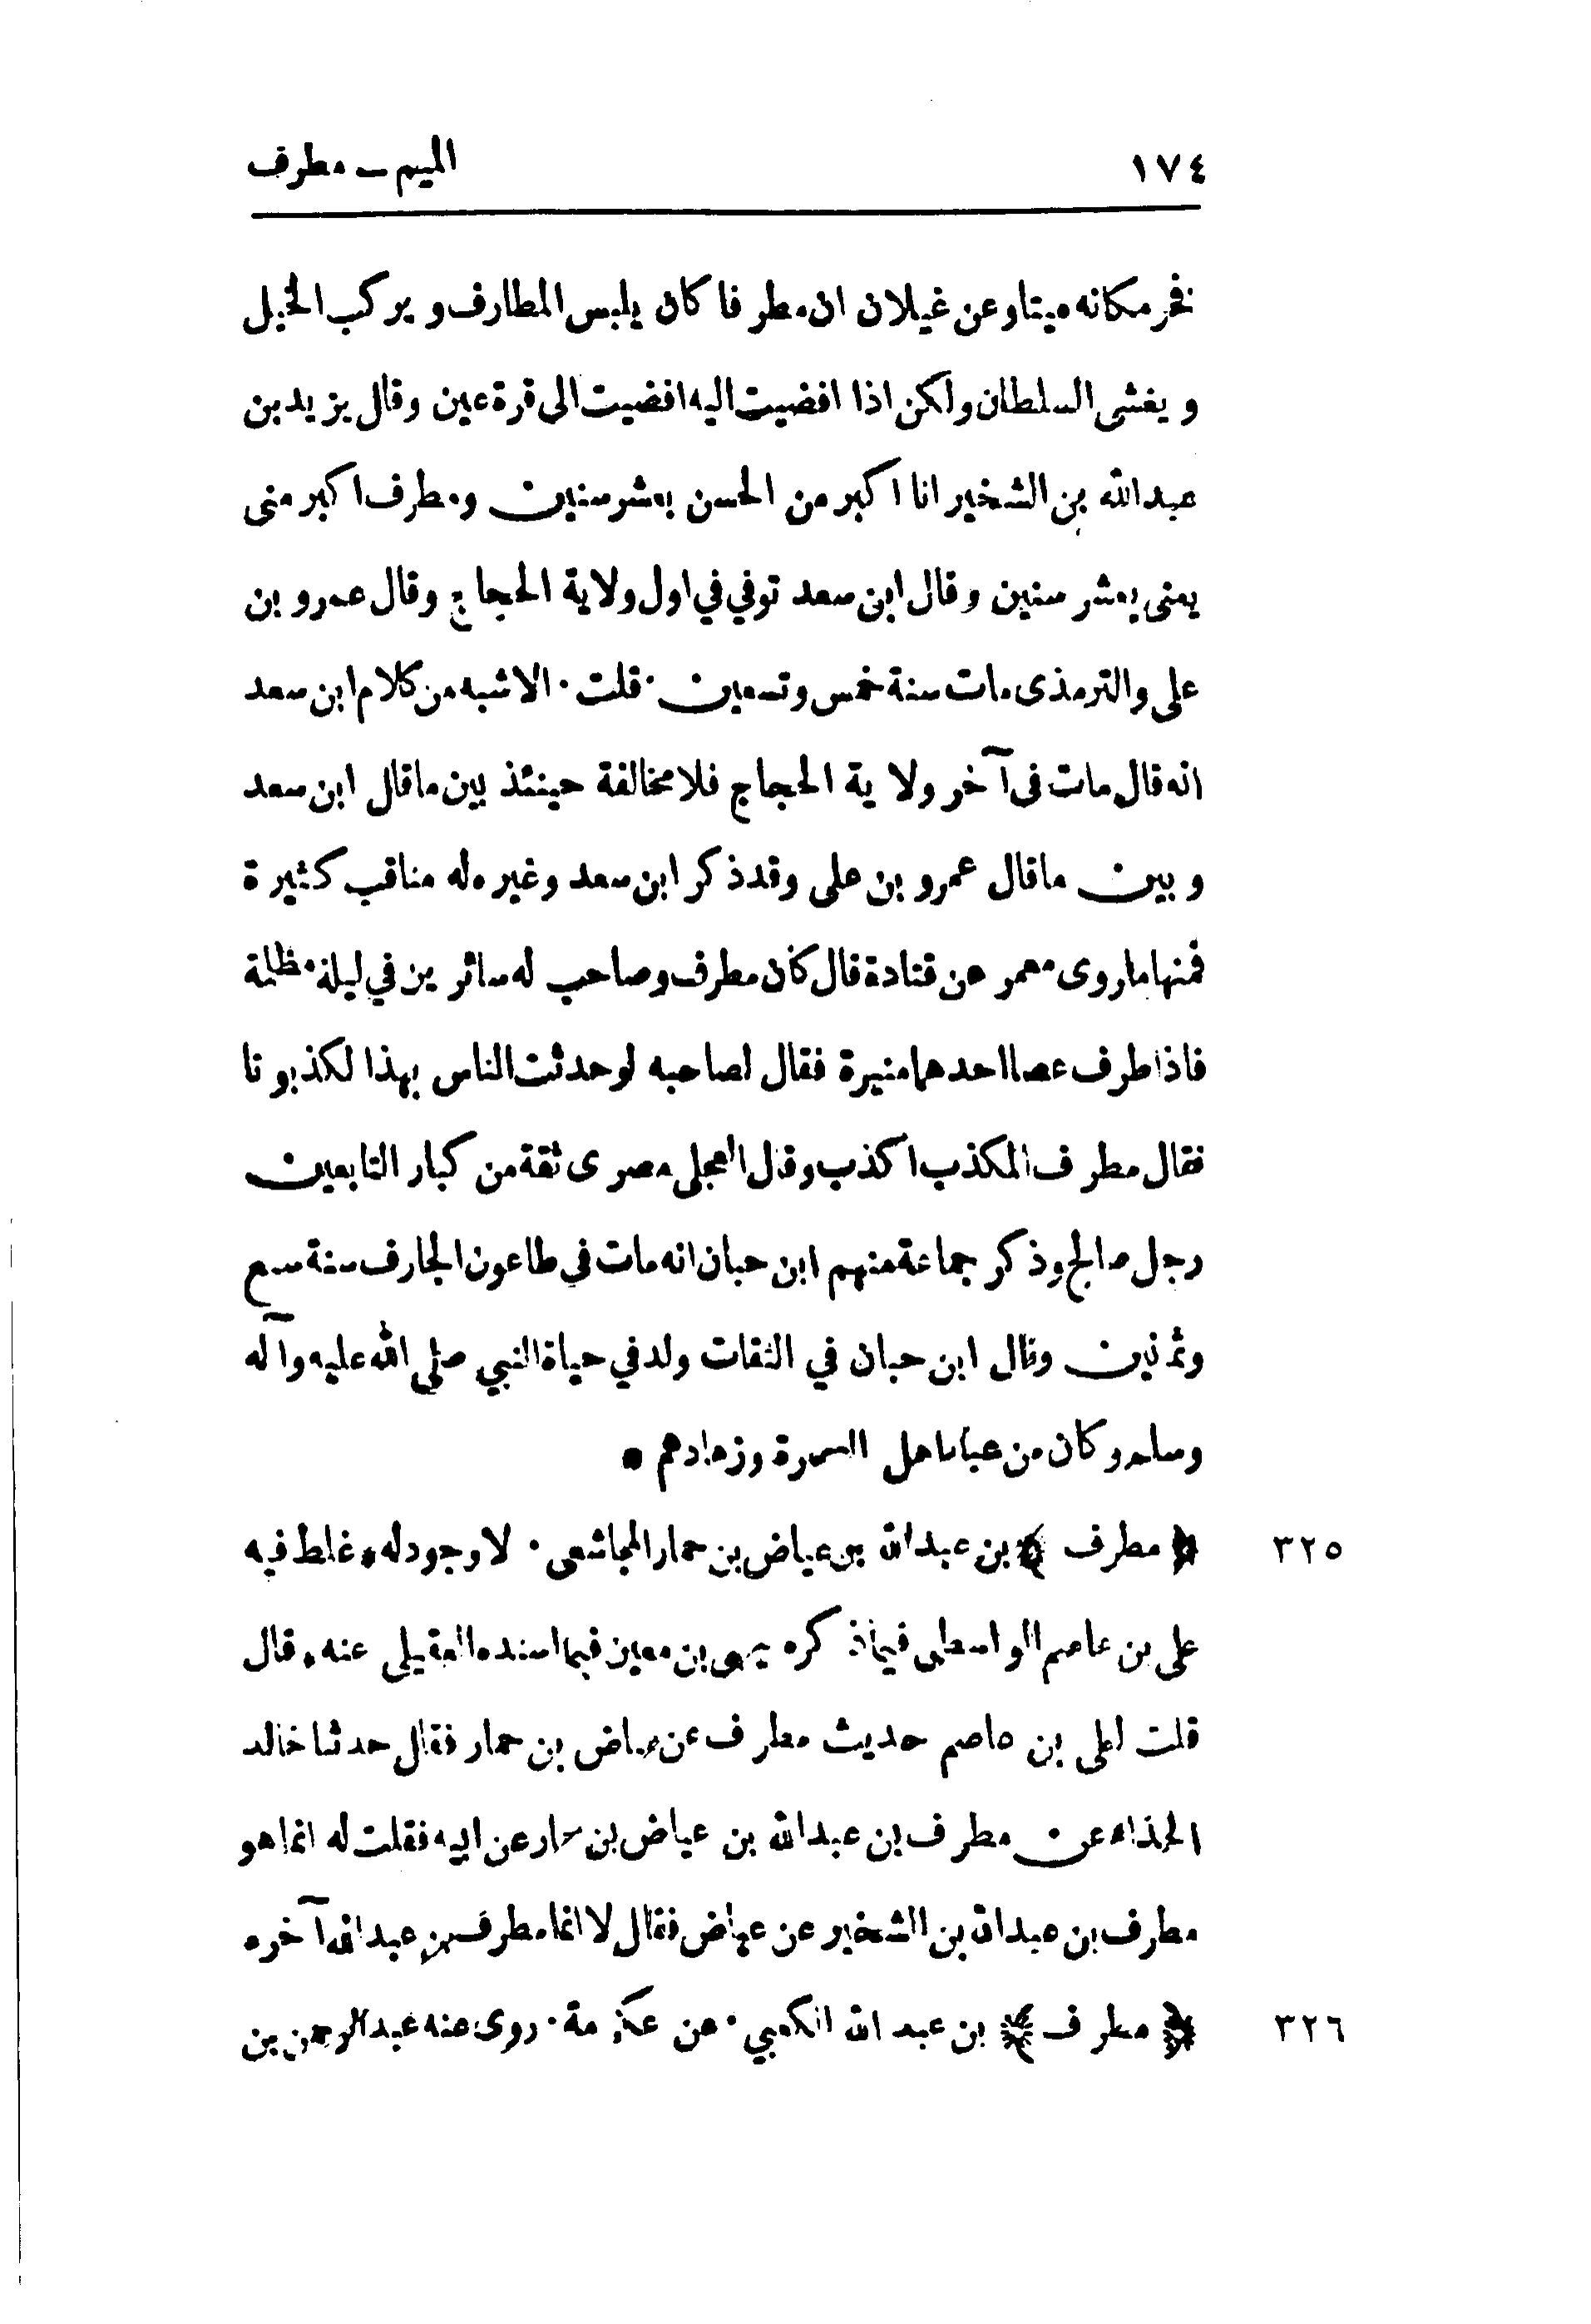 ١٧٤ الميم – مطرف
فخر مكانه ميتا وعن غيلان ان مطرفا كان يلبس المطارف ويركب الخيل
ويغشى السلطان ولكن اذا افضيت اليه افضيت الى قرة عين وقال يزيد بن
عبد الله بن الشخير انا اكبر من الحسن بعشر سنين ومطرف اكبر منى
يعنى بعشر سنين وقال ابن سعد توفي في اول ولاية الحجاج وقال عمرو بن
على والترمذى مات سنة خمس وتسعين · قلت · الاشبه من كلام ابن سعد
انه قال مات فى آخر ولاية الحجاج فلا مخالفة حينئذ بين ما قال ابن سعد
وبين ما قال عمرو بن على وقد ذكر ابن سعد وغيره له مناقب كثيرة
فمنها ما روى معمر عن قتادة قال كان مطرف وصاحب له سائرين في ليلة مظلمة
فاذا طرف عصا احدهما منيرة فقال لصاحبه لو حدثت الناس بهذا لكذبونا
فقال مطرف المكذب اكذب وقال العجلى مصرى ثقة من كبار التابعين
رجل صالح وذكر جماعة منهم ابن حبان انه مات في طاعون الجارف سنة سبع
وثمانين وقال ابن حبان في الثقات ولد في حياة النبي صلى الله عليه وآله
وسلم وكان من عباد اهل البصرة وزهادهم •
٣٢٥ ﴿ مطرف ﴾ بن عبد الله بن عياض بن حمار المجاشعى · لا وجود له * غلط فيه
على بن عاصم الواسطى فيما ذكره يحيى بن معين فيما اسنده العقيلى عنه * قال
قلت لعلى بن عاصم حديث مطرف عن عياض بن حمار فقال حدثنا خالد
الحذاء عن مطرف بن عبد الله بن عياض بن حمار عن ابيه فقلت له انما هو
مطرف بن عبد الله بن الشخير عن عياض فقال لا انما مطرف بن عبد الله آخر •
٣٢٦ ﴿ مطرف ﴾ بن عبد الله الكعبي · عن عكرمة · روى عنه عبد الرحمن بن